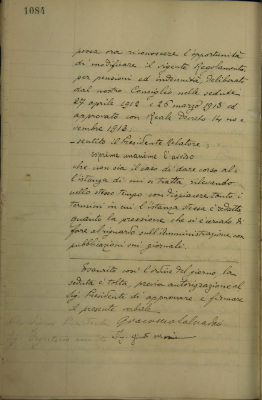 1084
possa ora riconoscere l'opportunità
di modificare il vigente Regolamento
per pensioni ed indennità deliberato
dal nostro Consiglio nelle sedute
27 aprile 1912 e 26 marzo 1913 ed
approvato con Reale Decreto 14 no=
vembre 1913;
- sentito il Presidente Relatore;
esprime unanime l'avviso
che non sia il caso di dare corso al=
l'istanza di cui si tratta rilevando
nello stesso tempo con dispiacere tanto i
termini in cui l'istanza stessa è redatta
quanto la pressione che si è cercato di
fare al riguardo sull'Amministrazione con
pubblicazioni sui giornali.
Esaurito così l'ordine del giorno la
seduta è tolta, previa autorizzazione al
Sig. Presidente di approvare e firmare
il presente verbale.
Giacomo